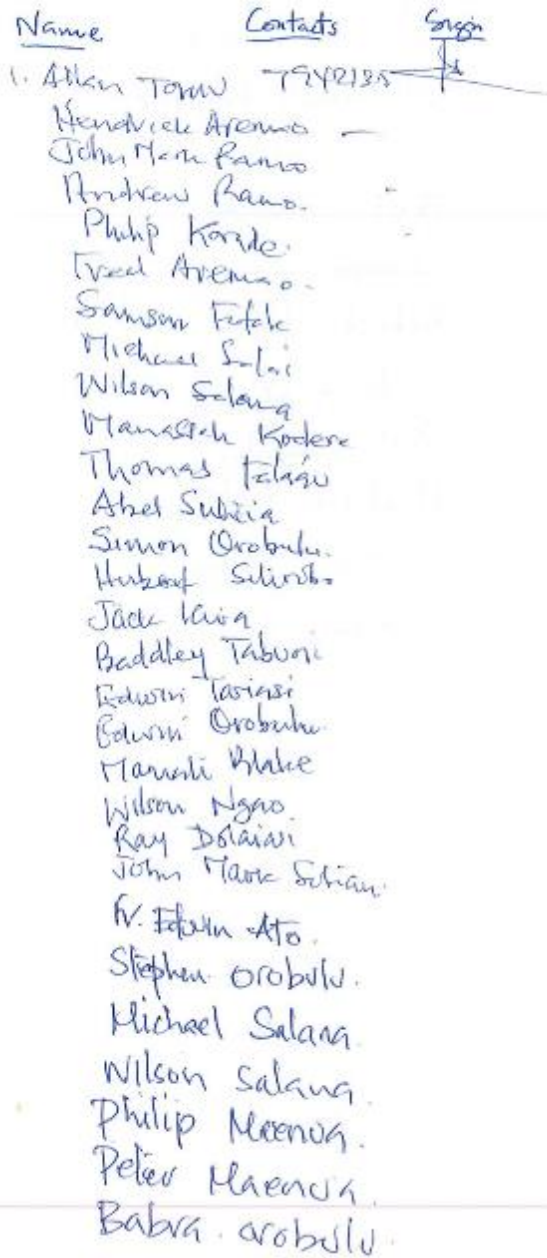 Name Contacts Sign
1. Allan Tomu 7942135
Hendrick Aremao
John Mark Ramo
Andrew Ramo.
Philip Korade.
Fred Aremao.
Samson Fafale
Michael Salai
Wilson Salana
Manasseh Kodere
Thomas Falagu
Abel Suhiia
Simon Orobulu.
Hubert Siliribo
Jack Kaia
Baddley Tabuni
Edwin Tasiasi
Edwin Orobulu
Manasli Blake
Wilson Ngao
Ray Dolaiasi
John Mark
Fr. Edwin Ato.
Stephen orobulu.
Michael Salana.
Wilson Salana.
Philip Meenua.
Peter Maenua.
Babra. orobulu.